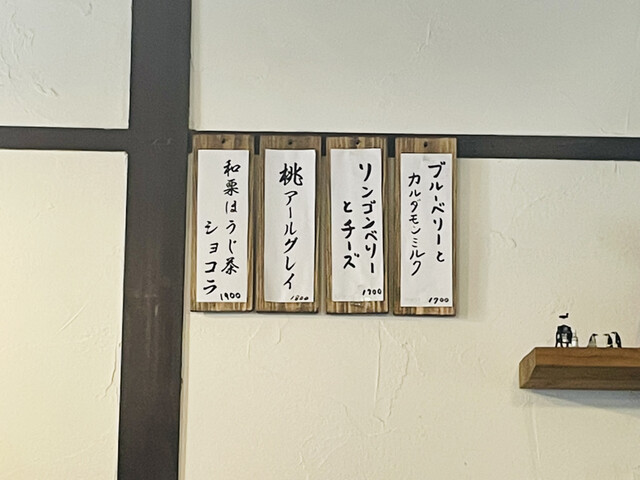 ブルーベリーと
カルダモンミルク
1700
リンゴンベリー
とチーズ
1700
桃アールグレイ
1800
和栗ほうじ茶
ショコラ
1900